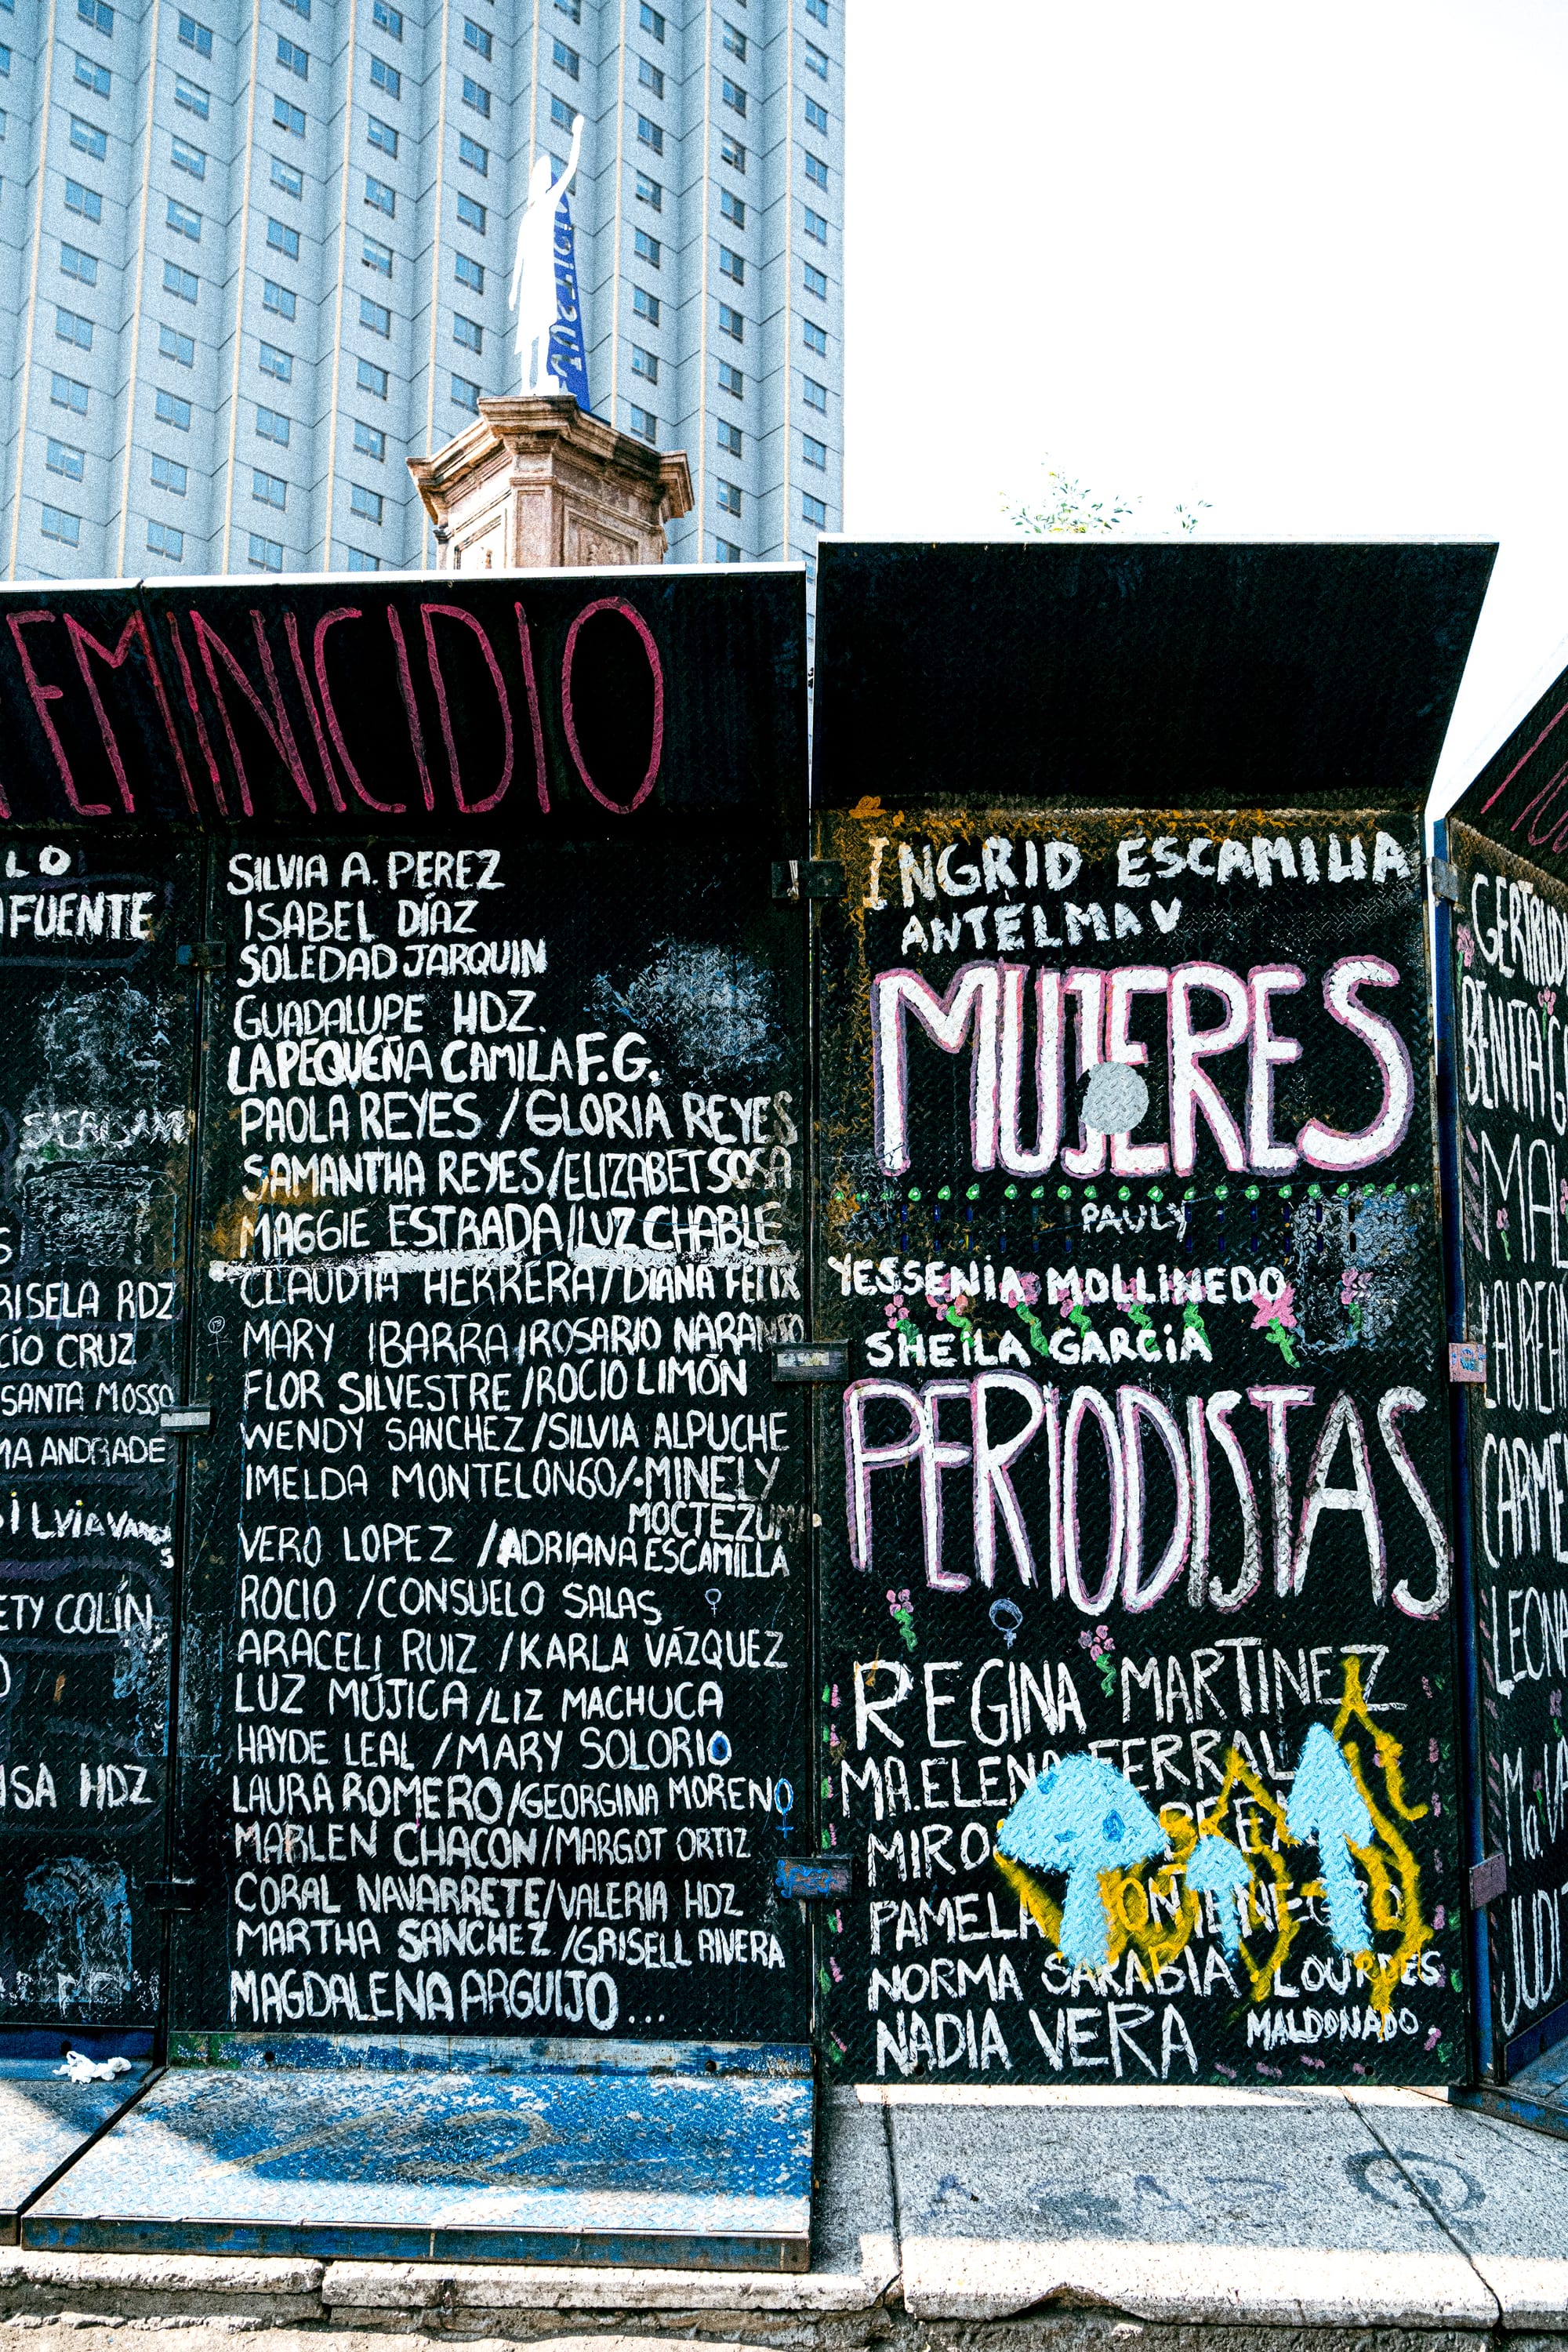 JUSTICIA
FEMINICIDIO
LO
AFUENTE
S
RISELA RDZ
CÍO CRUZ
SANTA MOSSO
MA ANDRADE
SILVIA VARGAS
ETY COLÍN
O
ISA HDZ
SILVIA A. PEREZ
ISABEL DÍAZ
SOLEDAD JARQUIN
GUADALUPE HDZ.
LA PEQUEÑA CAMILA F.G.
PAOLA REYES / GLORIA REYES
SAMANTHA REYES/ELIZABET SOSA
MAGGIE ESTRADA/LUZ CHABLE
CLAUDIA HERRERA/DIANA FELIX
MARY IBARRA/ROSARIO NARANJO
FLOR SILVESTRE/ROCIO LIMÓN
WENDY SANCHEZ/SILVIA ALPUCHE
IMELDA MONTELONGO/·MINELY
MOCTEZUMA
VERO LOPEZ /ADRIANA ESCAMILLA
ROCIO /CONSUELO SALAS
ARACELI RUIZ /KARLA VÁZQUEZ
LUZ MÚJICA/LIZ MACHUCA
HAYDE LEAL /MARY SOLORIO
LAURA ROMERO/GEORGINA MORENO
MARLEN CHACON/MARGOT ORTIZ
CORAL NAVARRETE/VALERIA HDZ
MARTHA SANCHEZ /GRISELL RIVERA
MAGDALENA ARGUIJO...
INGRID ESCAMILLA
ANTELMA V
MUJERES
PAULY
YESSENIA MOLLINEDO
SHEILA GARCIA
PERIODISTAS
REGINA MARTINEZ
MA. ELENA FERRAL
MIRO
PAMELA MONTENEGRO
NORMA SARABIA LOURDES
NADIA VERA MALDONADO
GERTRUD
BENITA
MAL
LAUREA
CARME
LEONA
Ma
JUD